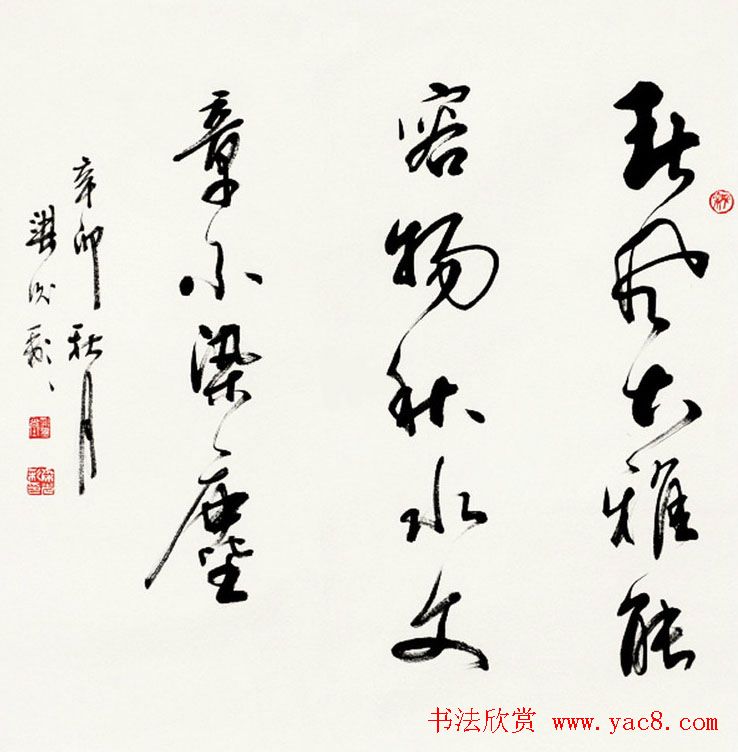 春風大雅能
容物秋水文
章不染塵
辛卯秋月
书法欣赏 www.yac8.com